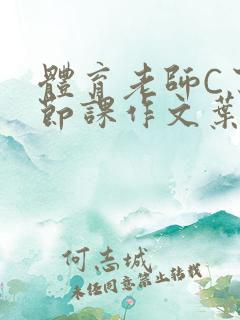 體育老師C
節課作文葉
何志城
未经同意禁止转载